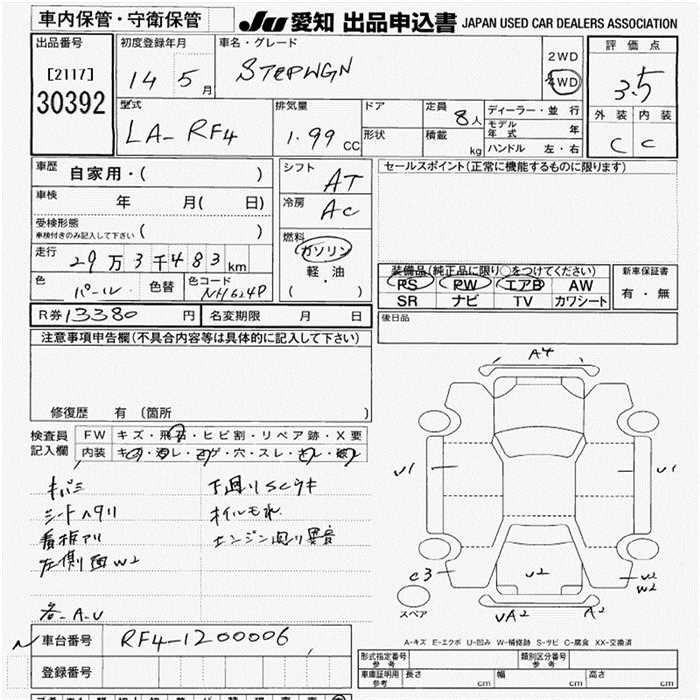 車内保管・守衛保管
JU 愛知 出品申込書 JAPAN USED CAR DEALERS ASSOCIATION
出品番号
[2117]
30392
初度登録年月
14 5月
車名・グレード
STEPWGN
2WD
4WD
評価点
3.5
外装 内装
C C
型式
LA-RF4
排気量
1.99 CC
ドア
形状
定員
8人
積載
kg
ディーラー・並行
モデル年式 年
ハンドル 左・右
車歴
自家用・( )
車検
年 月( 日)
受検形態
車検付きのみ記入して下さい ( )
走行
29万3千483km
色
パール
色替
色コード
NH624P
シフト
AT
冷房
AC
燃料
ガソリン
・
軽油
( )
セールスポイント(正常に機能するものに限ります)
装備品(純正品に限り○をつけてください)
PS PW エアB AW
SR ナビ TV カワシート
新車保証書
有・無
R券 13380 円
名変期限 月 日
後日品
注意事項申告欄(不具合内容等は具体的に記入して下さい)
修復歴 有(箇所 )
検査員記入欄
FW キズ・飛石・ヒビ割・リペア跡・X要
内装
キバミ
シートヘタリ
看板アリ
左側面W2
各-A-U
下廻りSCサキ
オイルモレ
エンジン廻り異音
A4
U1
U1
C3
U2
U2
W2
UA2
A2
スペア
A-キズ E-エクボ U-凹み W-補修跡 S-サビ C-腐食 XX-交換済
車台番号
RF4-1200006
登録番号
形式指定番号
参考
類別区分番号
参考
車庫証明用
参考
長さ cm 幅 cm 高さ cm